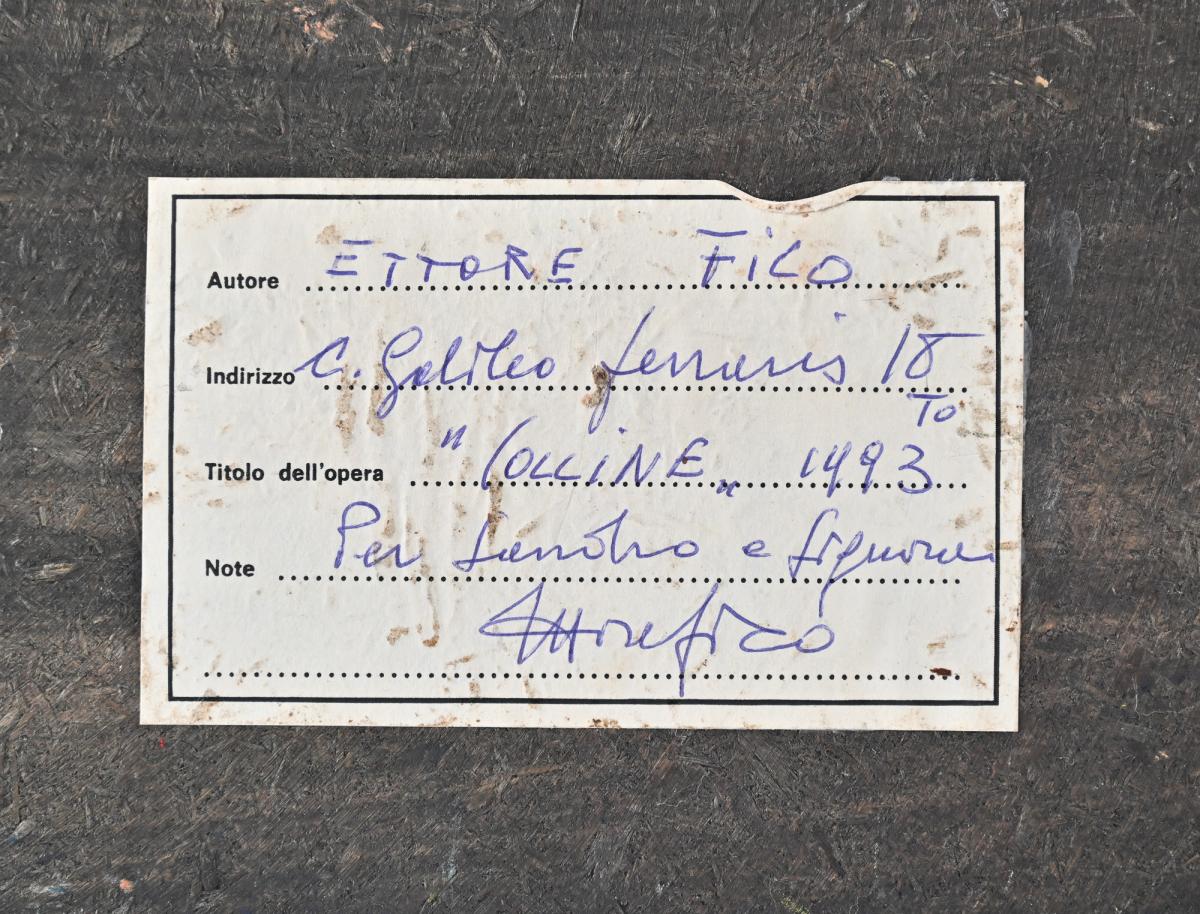 Autore ETTORE FICO
Indirizzo C. Galileo Ferraris 18
TO
Titolo dell'opera "COLLINE" 1993
Note Per Sandro e Signora
Ettore Fico